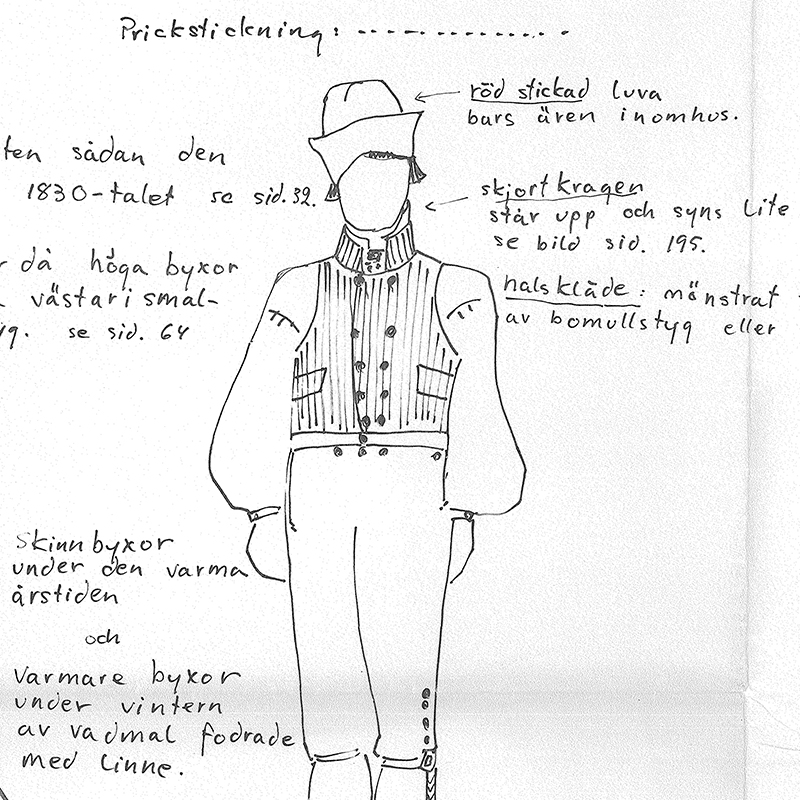 Prickstickning: - - - - - - - - - - - - - -
röd stickad luva
bars även inomhus.
sådan den
1830-talet se sid. 32.
skjortkragen
står upp och syns lite
se bild sid. 195.
då höga byxor
västar i smal-
se sid. 64
halskläde: mönstrat
av bomullstyg eller
Skinnbyxor
under den varma
årstiden
och
varmare byxor
under vintern
av vadmal fodrade
med linne.